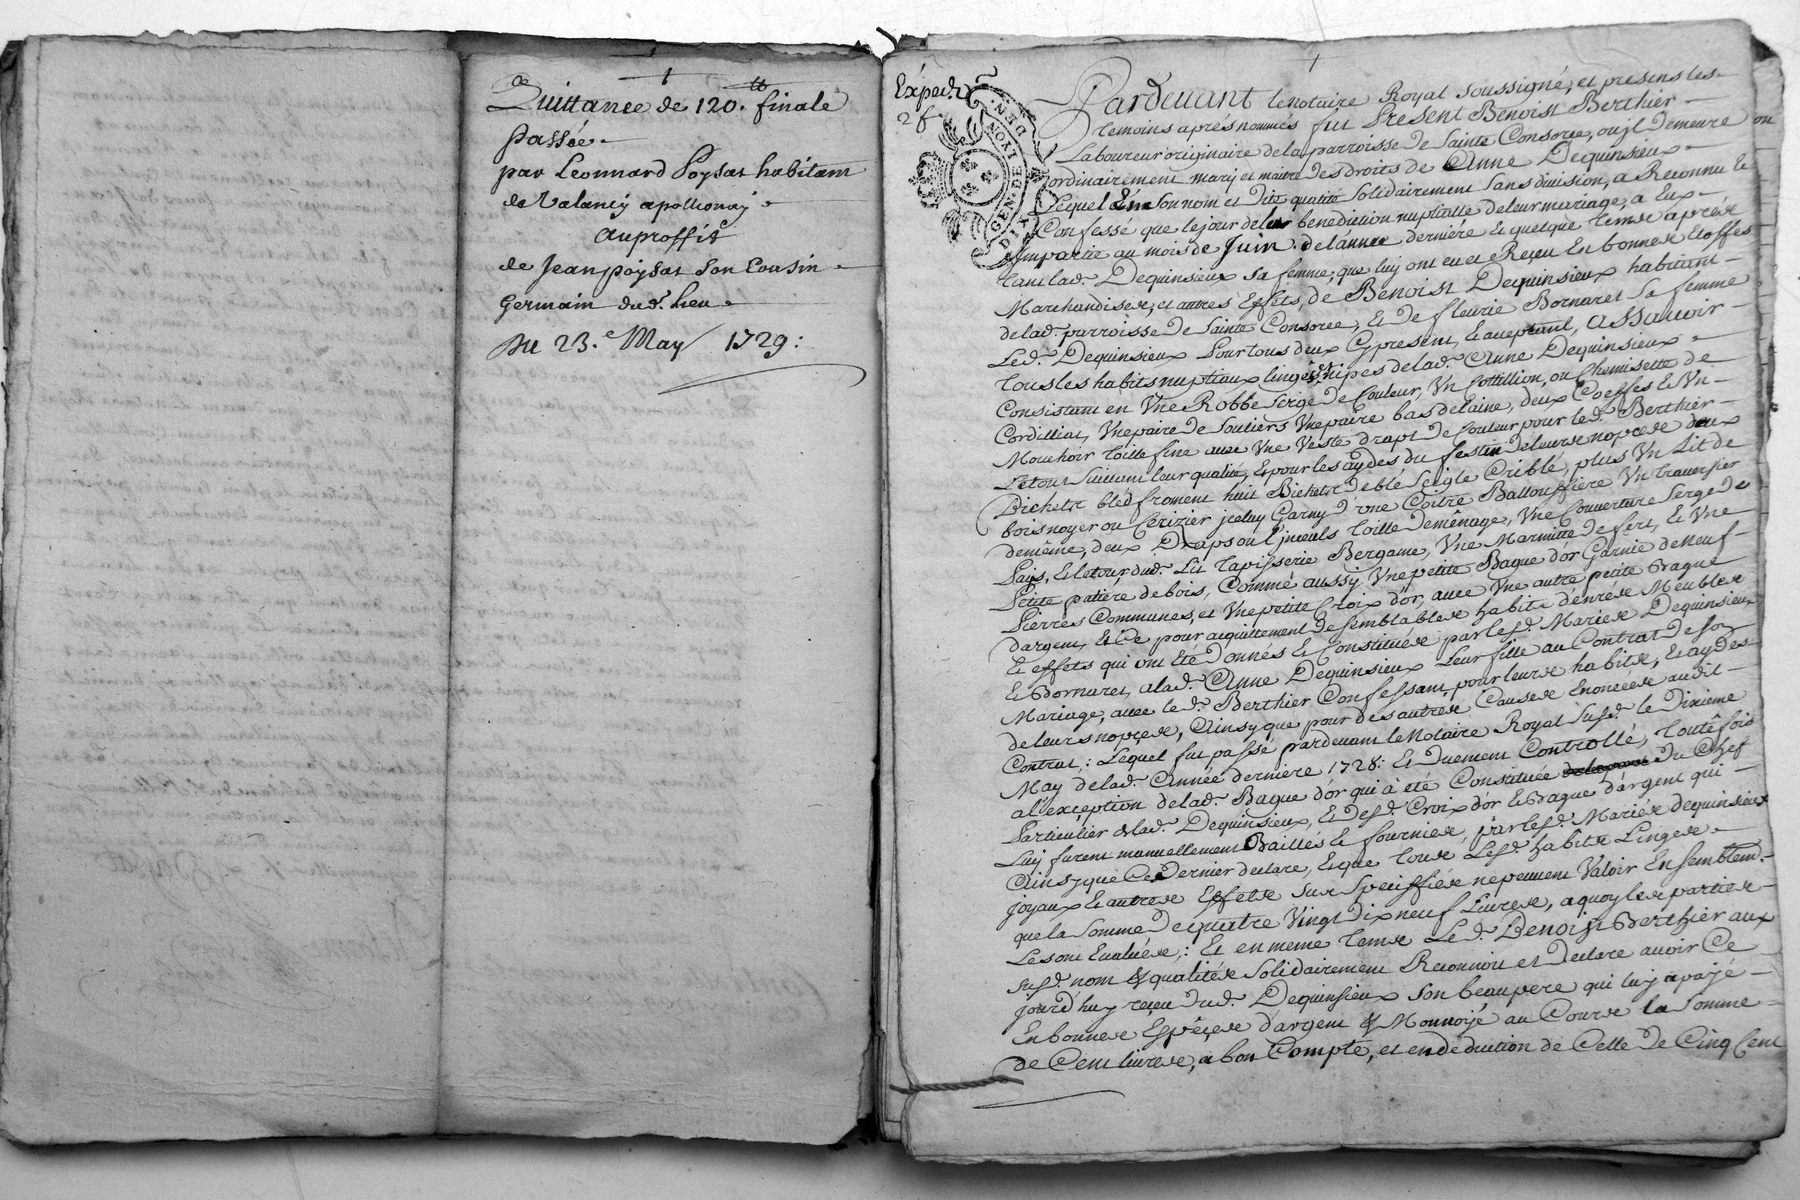 Quittance de 120.tt finale
passée
par Leonnard Poysat habitant
de Valancy apollionay
au proffit
de Jean poysat son Cousin
Germain dud. lieu
Du 23.e May 1729:
Expedz
2 f
GEN. DE LYON DIX DEN.
Pardevant le notaire Royal soussigné, et presens les
temoins aprés nommés fut Present Benoist Berthier
Laboureur originaire de la parroisse de Sainte Consorce, ou jl demeure
ordinairement mary et maitre des droits de Anne Dequinsieux
Lequel En son nom et Dite qualité solidairement sans division, a Reconnu Et
Confessé que le jour de leur benediction nuptialle de leur mariage, a Eux
impartie au mois de Juin de l'année derniére Et quelque tems aprés
tant lad. Dequinsieux sa femme, que luy ont eu et Reçeu En bonnes Etoffes
Marchandises, et autres Effets, de Benoist Dequinsieux habitant
de lad. parroisse de Sainte Consorce, Et de fleurie Bornaret sa femme
Led. Dequinsieux Pour tous deux Cy present, Et acceptant, assavoir
tous les habits nuptiaux linges, nipes de lad. Anne Dequinsieux
Consistant en Une Robbe serge de Couleur, Un Cottillion, ou Chemisette de
Cordilliat, Une paire de souliers Une paire bas de laine, deux Coeffes Et Un
Mouchoir toille fine avec Une Veste drapt de Couleur pour led. Berthier
Le tout suivant leur qualité, Et pour les aydes du festin de leurs nopces deux
Bichets bled froment huit Bichets de blé seigle Criblé, plus Un Lit de
bois noyer ou Cerizier jceluy Garny d'une Coitre Balloussiére Un traversier
de même, deux Draps ou linceuls toille de mênage, Une Couverture serge de
Païs, Et le tour dud. Lit tapisserie Bergame, Une Marmitte de fert, Et Une
Petite patiére de bois, Comme aussy Une petite Bague d'or Garnie de neuf
Pierres Communes, et Une petite Croix d'or, avec Une autre petite Bague
d'argent, Et Ce pour acquittement de semblables habits denrées Meubles
Et effets qui ont été Donnés Et Constitués par lesd. Mariés Dequinsieux
Et Bornaret, a lad. Anne Dequinsieux Leur fille au Contrat de son
Mariage, avec led. Berthier Confessant, pour leurs habits, Et aydes
de leurs nopces, Ainsy que pour des autres Causes Enoncées audit
Contrat: Lequel fut passé pardevant le Notaire Royal susd. le Dixieme
May de lad. Année derniére 1728: Et Duement Controllé, toutêfois
a l'exception de lad. Bague d'or qui à été Constituée du Chef
Particulier de lad. Dequinsieux, Et desd. Croix d'or Et Bague d'argent qui
Luy furent manuellement Baillés Et fournies, par lesd. Mariés dequinsieux
Ainsy que Ce Dernier declare, Et que tous Lesd. habits Linges
joyaux Et autres Effets sus specifiés ne peuvent Valoir Ensemblem.
que la Somme de quatre Vingt Dix neuf Livres, a quoy les parties
Les ont Evalués: Et en meme tems Led. Benoist Berthier aux
susd. nom & qualités solidairement Reconnoit et Declare avoir Ce
jourd'huy reçeu dud. Dequinsieux son beaupere qui luy a payé
En bonnes Espêçes d'argent & Monnoyé au Cours la somme
de Cent livres, a bon Compte, et en déduction de Celle de Cinq Cent